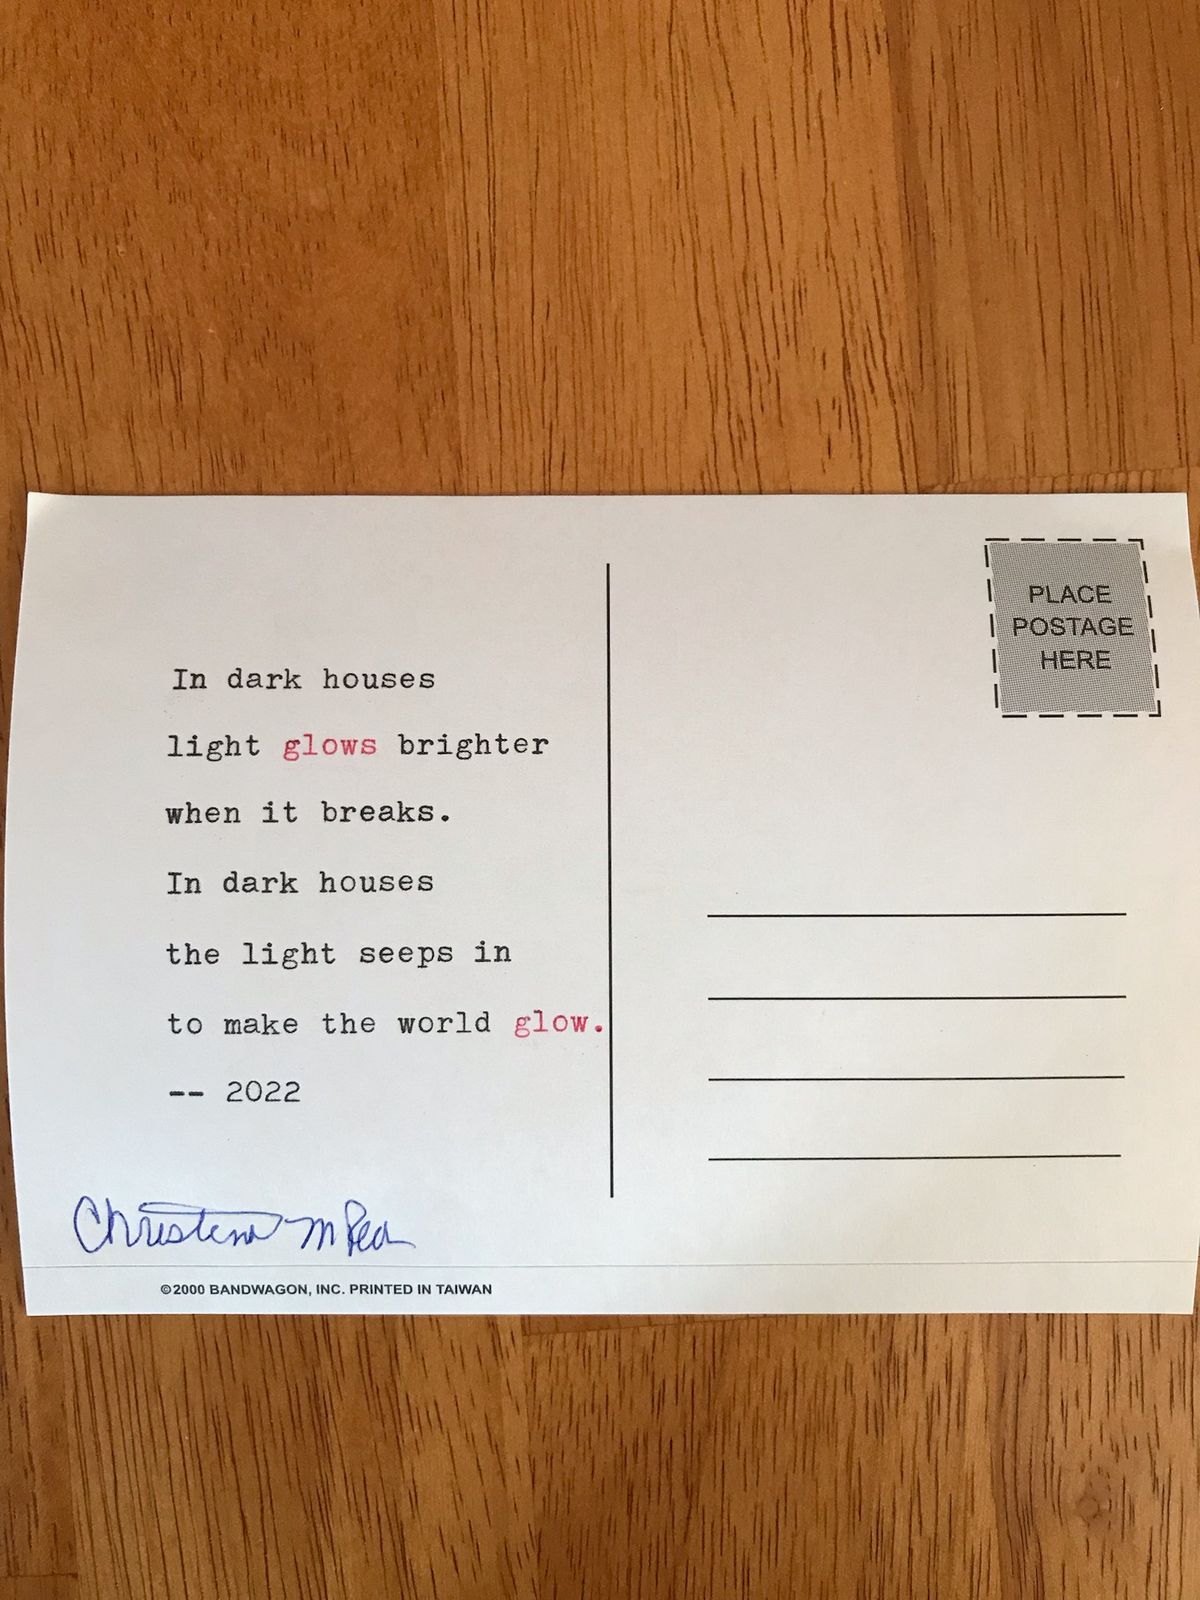 PLACE
POSTAGE
HERE
In dark houses
light glows brighter
when it breaks.
In dark houses
the light seeps in
to make the world glow.
-- 2022
Christina M
©2000 BANDWAGON, INC. PRINTED IN TAIWAN